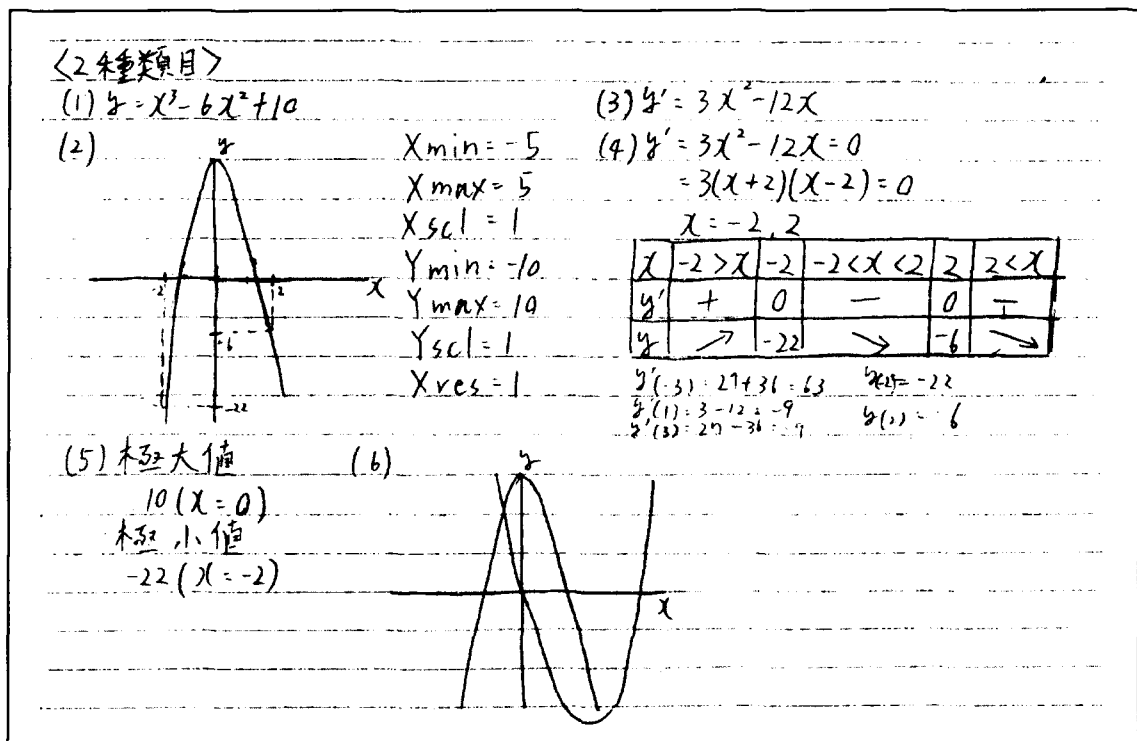 〈2種類目〉
(1) y = x³ - 6x² + 10
(2)
y
x
-2
2
-6
-22
Xmin = -5
Xmax = 5
Xscl = 1
Ymin = -10
Ymax = 10
Yscl = 1
Xres = 1
(3) y' = 3x² - 12x
(4) y' = 3x² - 12x = 0
= 3(x+2)(x-2) = 0
x = -2, 2
x -2>x -2 -2<x<2 2 2<x
y' + 0 − 0 −
y ↗ -22 ↘ -6 ↘
y'(-3) = 27 + 36 = 63
y'(1) = 3 - 12 = -9
y'(3) = 27 - 36 = -9
y(-2) = -22
y(2) = -6
(5) 極大値
10 (x = 0)
極小値
-22 (x = -2)
(6)
y
x